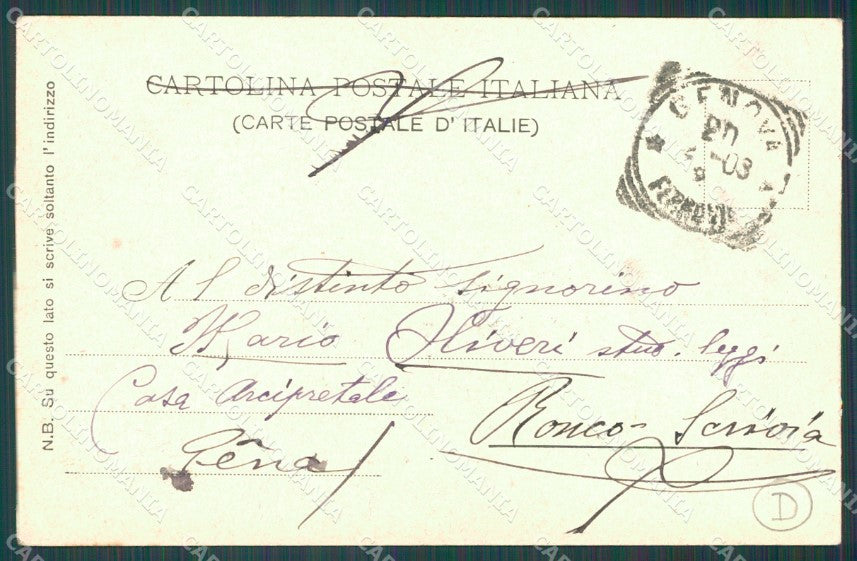 CARTOLINA POSTALE ITALIANA
(CARTE POSTALE D'ITALIE)
N.B. Su questo lato si scrive soltanto l'indirizzo
GENOVA
FERROVIA
Al distinto Signorino
Mario Oliveri stud. leggi
Casa Arcipretale
Ronco Scrivia
D
CARTOLINOMANIA